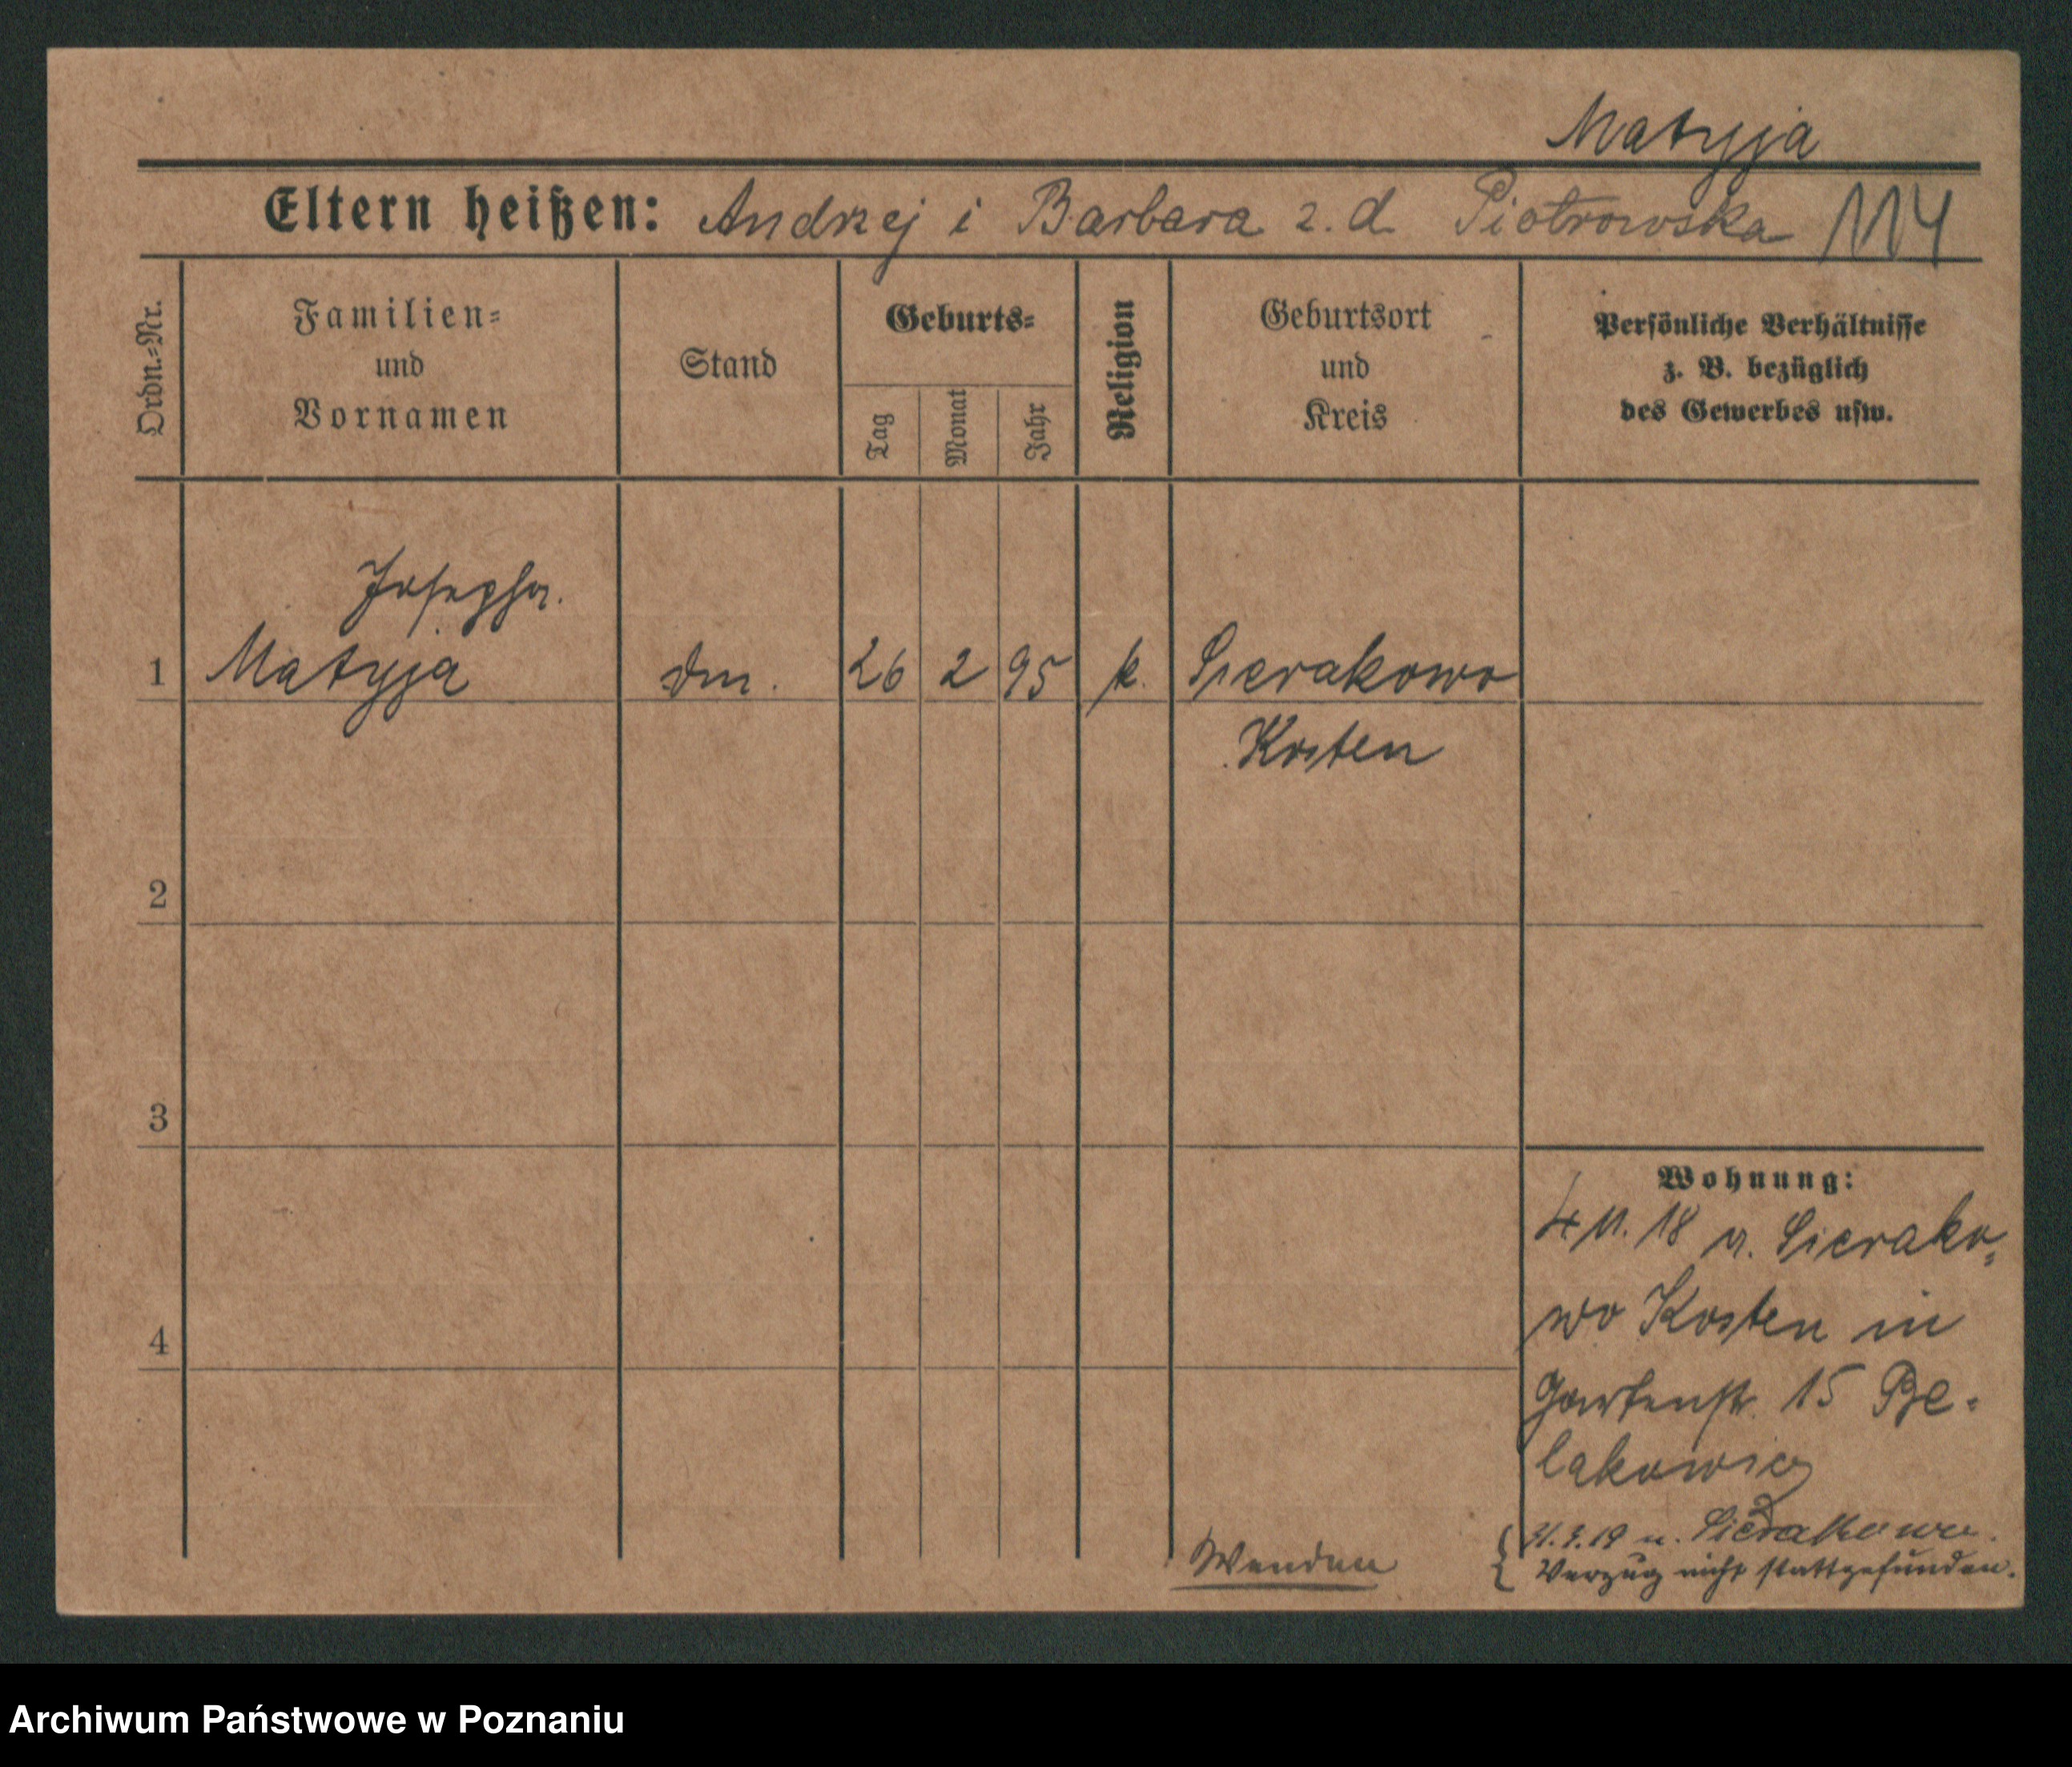 Matyja
Eltern heißen: Andrzej i Barbara z. d. Piotrowska 114
Ordn.=Nr.
Familien=
und
Vornamen
Stand
Geburts=
Tag
Monat
Jahr
Religion
Geburtsort
und
Kreis
Persönliche Verhältnisse
z. B. bezüglich
des Gewerbes usw.
Josepha.
1 Matyja 26 2 95 k. Sierakowo
Kosten
2
3
4
Wohnung:
4 11. 18 a. Sierako=
wo Kosten in
Gartenstr. 15
lakowicz
n. Sierakowo.
Verzug nicht stattgefunden.
Wenden
Archiwum Państwowe w Poznaniu